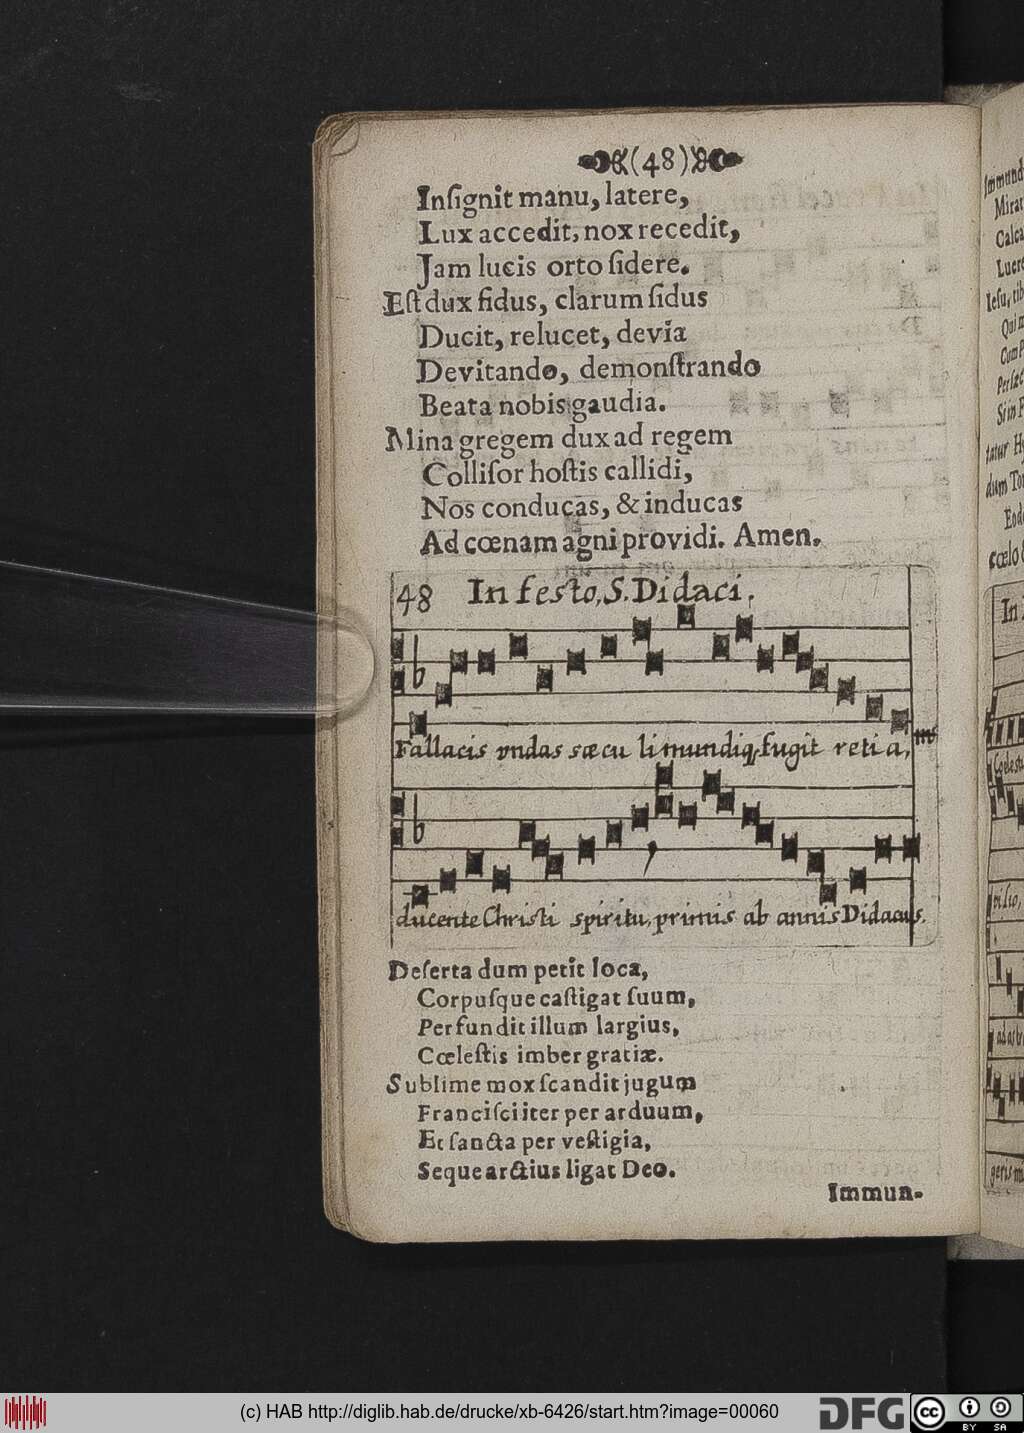 (48)
Inſignit manu, latere,
Lux accedit, nox recedit,
Jam lucis orto ſidere.
Eſt dux fidus, clarum ſidus
Ducit, relucet, devia
Devitando, demonſtrando
Beata nobis gaudia.
Mina gregem dux ad regem
Colliſor hoſtis callidi,
Nos conducas, & inducas
Ad cœnam agni providi. Amen.
48 In festo, S. Didaci.
Fallacis vndas sæcu li mundiq, fugit reti a,
ducente Christi spiritu, primis ab annis Didacus.
Deſerta dum petit loca,
Corpuſque caſtigat ſuum,
Perfundit illum largius,
Cœleſtis imber gratiæ.
Sublime mox ſcandit jugum
Franciſci iter per arduum,
Et ſancta per veſtigia,
Seque arctius ligat Deo.
Immun-
Immund
Mirat
Calca
Luere
Ieſu, tib
Qui
Si in
tatur
dum
cœlo
In
Cœlestu
ad astr
(c) HAB http://diglib.hab.de/drucke/xb-6426/start.htm?image=00060
DFG
cc
BY SA